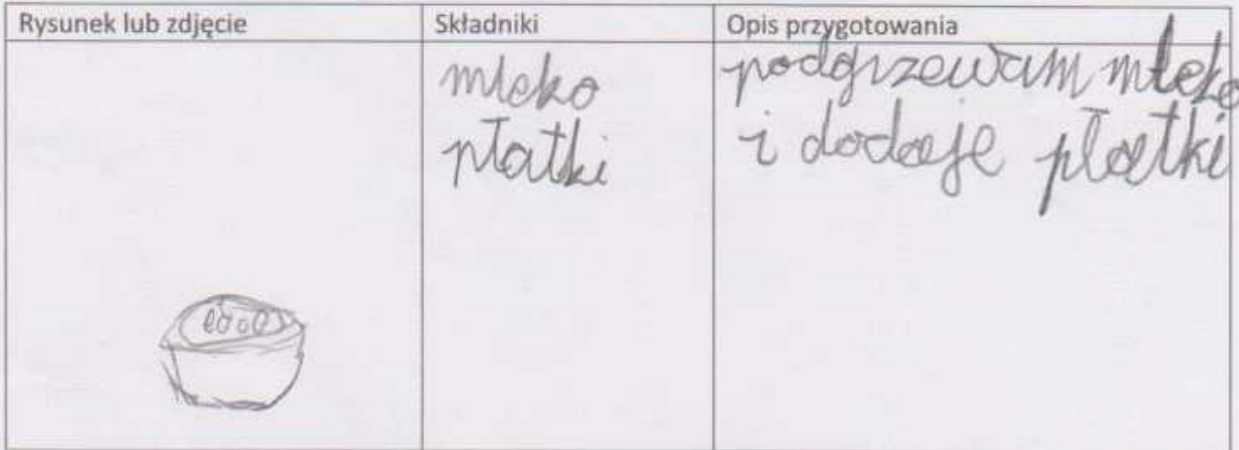 Rysunek lub zdjęcie
Składniki
Opis przygotowania
mleko
płatki
podgrzewam mleko
i dodaje płatki